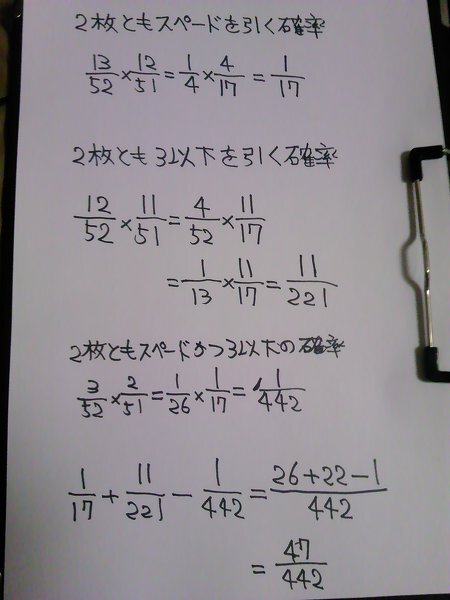 2枚ともスペードを引く確率
13/52×12/51=1/4×4/17=1/17
2枚とも3以下を引く確率
12/52×11/51=4/52×11/17
=1/13×11/17=11/221
2枚ともスペードかつ3以下の確率
3/52×2/51=1/26×1/17=1/442
1/17+11/221-1/442=26+22-1/442
=47/442